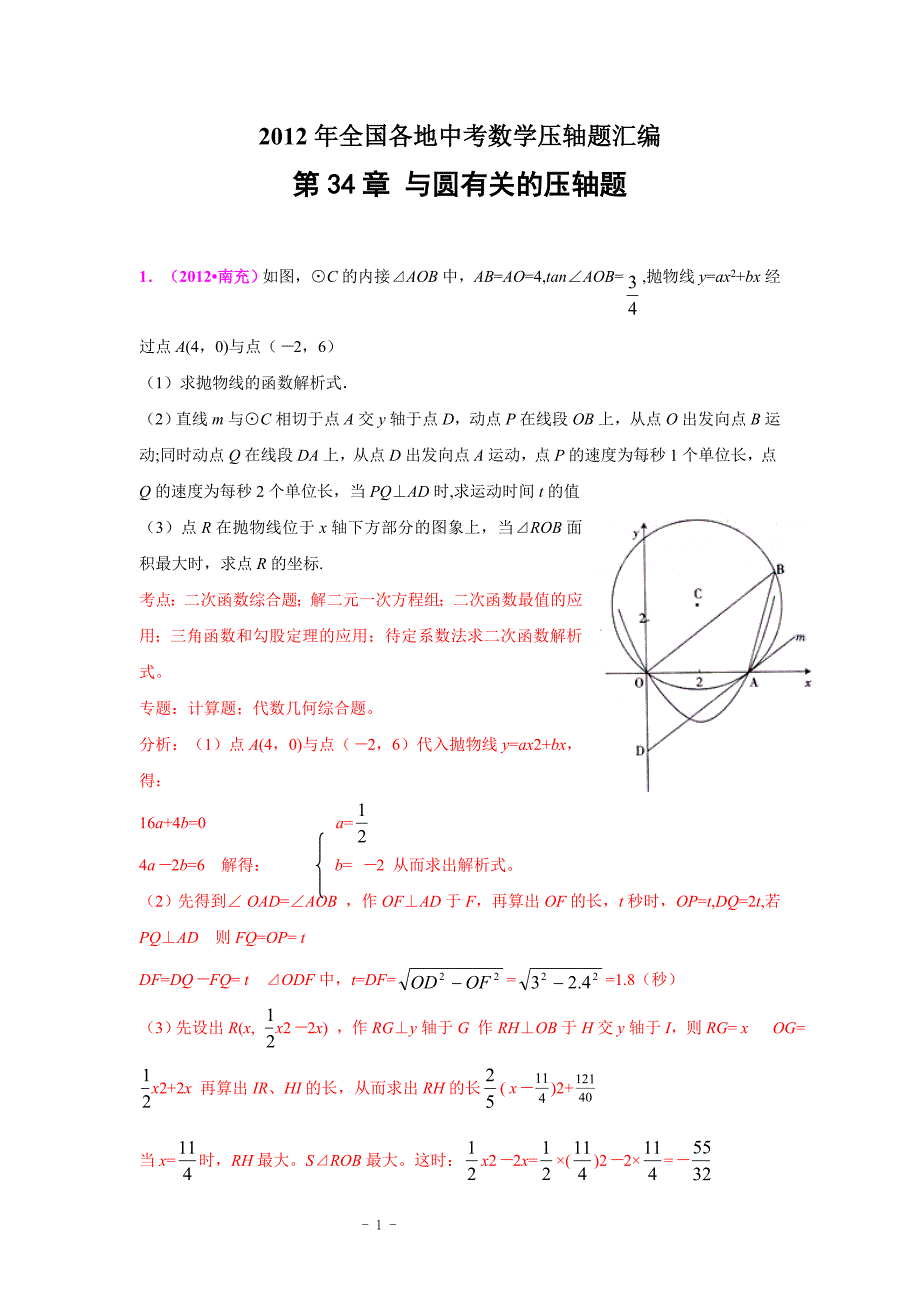 2012 年全国各地中考数学压轴题汇编
第 34 章 与圆有关的压轴题
1．（2012•南充）如图，⊙C 的内接⊿AOB 中，AB=AO=4,tan∠AOB= 3/4 ,抛物线 y=ax²+bx 经
过点 A(4，0)与点（－2，6）
（1）求抛物线的函数解析式．
（2）直线 m 与⊙C 相切于点 A 交 y 轴于点 D，动点 P 在线段 OB 上，从点 O 出发向点 B 运
动;同时动点 Q 在线段 DA 上，从点 D 出发向点 A 运动，点 P 的速度为每秒 1 个单位长，点
Q 的速度为每秒 2 个单位长，当 PQ⊥AD 时,求运动时间 t 的值
（3）点 R 在抛物线位于 x 轴下方部分的图象上，当⊿ROB 面
积最大时，求点 R 的坐标.
y
B
C
2
m
O
2
A
x
D
考点: 二次函数综合题；解二元一次方程组；二次函数最值的应
用；三角函数和勾股定理的应用；待定系数法求二次函数解析
式。
专题：计算题；代数几何综合题。
分析：（1）点 A(4，0)与点（－2，6）代入抛物线 y=ax2+bx，
得：
16a+4b=0 a= 1/2
4a－2b=6 解得： b= －2 从而求出解析式。
（2）先得到∠ OAD=∠AOB ，作 OF⊥AD 于 F，再算出 OF 的长，t 秒时，OP=t,DQ=2t,若
PQ⊥AD 则 FQ=OP= t
DF=DQ－FQ= t ⊿ODF 中，t=DF= √(OD²－OF²) = √(3²－2.4²) =1.8（秒）
（3）先设出 R(x, 1/2 x2－2x) ，作 RG⊥y 轴于 G 作 RH⊥OB 于 H 交 y 轴于 I，则 RG= x OG=
1/2 x2+2x 再算出 IR、HI 的长，从而求出 RH 的长 2/5 ( x－ 11/4 )2+ 121/40
当 x= 11/4 时，RH 最大。S⊿ROB 最大。这时： 1/2 x2－2x= 1/2 ×( 11/4 )2－2× 11/4 =－ 55/32
- 1 -